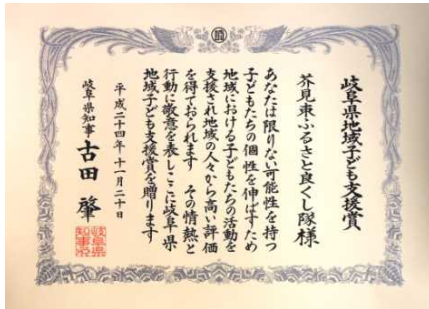 岐阜県地域子ども支援賞
芥見東ふるさと良くし隊様
あなたは限りない可能性を持つ
子どもたちの個性を伸ばすため
地域における子どもたちの活動を
支援され地域の人々から高い評価
を得ておられます その情熱と
行動に敬意を表しここに岐阜県
地域子ども支援賞を贈ります
平成二十四年十一月二十日
岐阜県知事 古田肇
岐阜県
知事之印